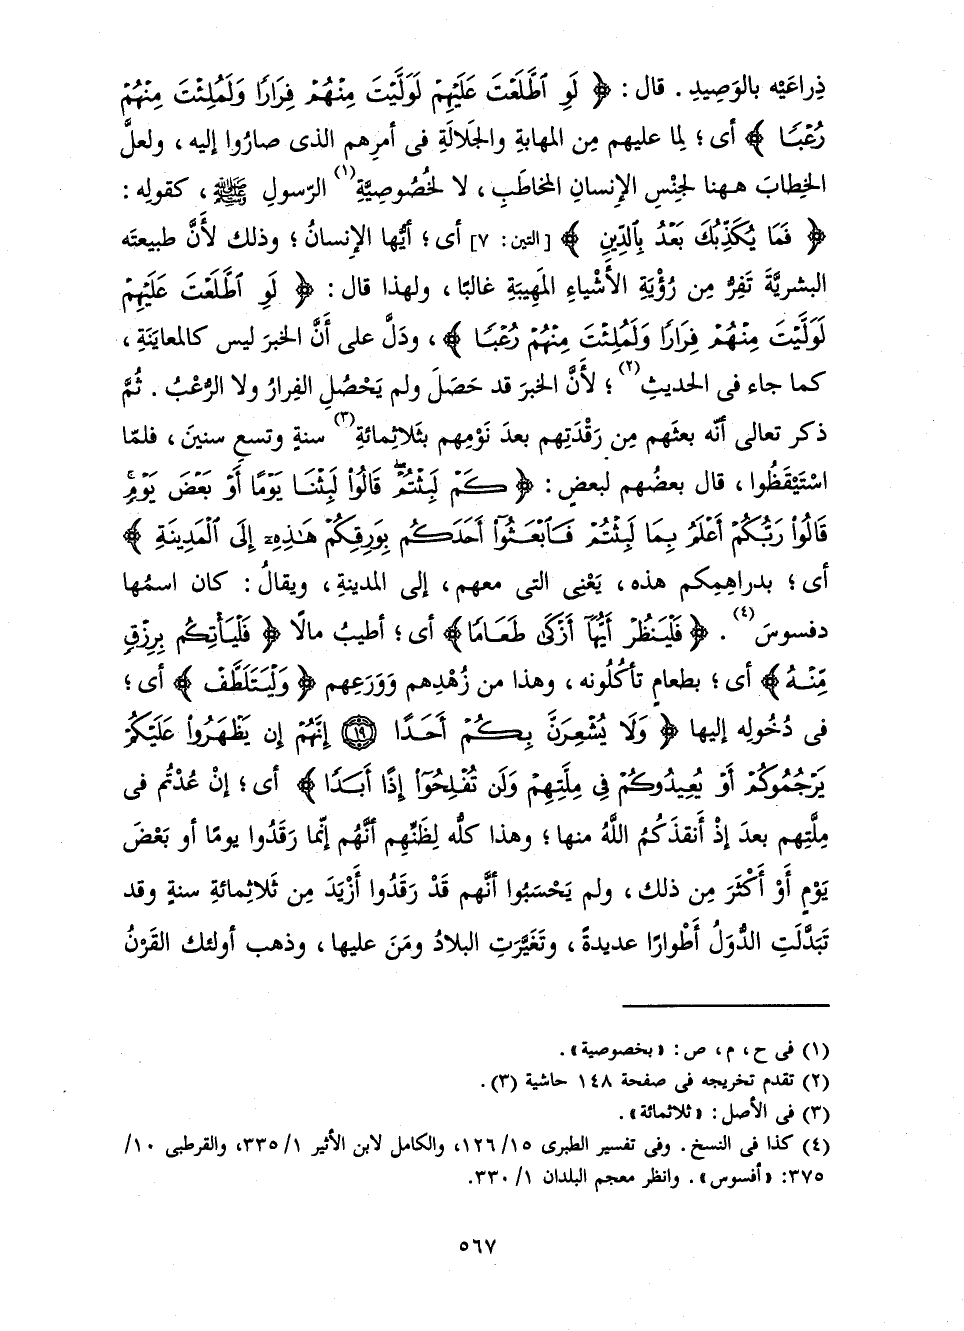 ذِراعَيْه بالوَصِيدِ . قال : ﴿ لَوِ ٱطَّلَعْتَ عَلَيْهِمْ لَوَلَّيْتَ مِنْهُمْ فِرَارًا وَلَمُلِئْتَ مِنْهُمْ
رُعْبًا ﴾ أى ؛ لِما عليهم مِن المهابةِ والجَلالَةِ فى أمرِهم الذى صارُوا إليه ، ولعلَّ
الخِطابَ هـهنا لجِنْسِ الإِنسانِ المخاطَبِ ، لا لخُصُوصِيَّةِ(١) الرّسولِ ﷺ ، كقولِه :
﴿ فَمَا يُكَذِّبُكَ بَعْدُ بِٱلدِّينِ ﴾ [ التين : ٧ ] أى ؛ أيُّها الإِنسانُ ؛ وذلك لأَنَّ طبيعتَه
البشريَّةَ تَفِرُّ مِن رُؤْيَةِ الأَشْياءِ المَهِيبَةِ غالبًا ، ولهذا قال : ﴿ لَوِ ٱطَّلَعْتَ عَلَيْهِمْ
لَوَلَّيْتَ مِنْهُمْ فِرَارًا وَلَمُلِئْتَ مِنْهُمْ رُعْبًا ﴾ ، ودَلَّ على أَنَّ الخبرَ ليس كالمعايَنَةِ ،
كما جاء فى الحديثِ(٢) ؛ لأَنَّ الخبرَ قد حَصَلَ ولم يَحْصُلِ الفِرارُ ولا الرُّعْبُ . ثُمَّ
ذكر تعالى أنّه بعثَهم مِن رَقْدَتِهم بعدَ نَوْمِهم بثَلاثِمائةِ(٣) سنةٍ وتسعِ سنينَ ، فلمّا
اسْتَيْقَظُوا ، قال بعضُهم لبعضٍ : ﴿ كَمْ لَبِثْتُمْ ۖ قَالُوا۟ لَبِثْنَا يَوْمًا أَوْ بَعْضَ يَوْمٍ ۚ
قَالُوا۟ رَبُّكُمْ أَعْلَمُ بِمَا لَبِثْتُمْ فَٱبْعَثُوٓا۟ أَحَدَكُم بِوَرِقِكُمْ هَـٰذِهِۦٓ إِلَى ٱلْمَدِينَةِ ﴾
أى ؛ بدراهِمِكم هذه ، يَعْنِى التى معهم ، إلى المدينةِ ، ويقالُ : كان اسمُها
دفسوسَ(٤) . ﴿ فَلْيَنظُرْ أَيُّهَآ أَزْكَىٰ طَعَامًا ﴾ أى ؛ أطيبُ مالًا ﴿ فَلْيَأْتِكُم بِرِزْقٍ
مِّنْهُ ﴾ أى ؛ بطعامٍ تأكُلُونه ، وهذا من زُهْدِهم وَوَرَعِهم ﴿ وَلْيَتَلَطَّفْ ﴾ أى ؛
فى دُخُولِه إليها ﴿ وَلَا يُشْعِرَنَّ بِكُمْ أَحَدًا ۝١٩ إِنَّهُمْ إِن يَظْهَرُوا۟ عَلَيْكُمْ
يَرْجُمُوكُمْ أَوْ يُعِيدُوكُمْ فِى مِلَّتِهِمْ وَلَن تُفْلِحُوٓا۟ إِذًا أَبَدًا ﴾ أى ؛ إنْ عُدْتُم فى
مِلَّتِهم بعدَ إذْ أَنقذَكُمُ اللَّهُ منها ؛ وهذا كلُّه لِظَنِّهِم أنَّهُم إنَّما رَقَدُوا يومًا أو بَعْضَ
يَوْمٍ أَوْ أَكْثَرَ مِن ذلك ، ولم يَحْسَبُوا أنَّهم قَدْ رَقَدُوا أَزْيَدَ مِن ثَلاثِمائةِ سنةٍ وقد
تَبَدَّلَتِ الدُّوَلُ أَطْوارًا عديدةً ، وتَغَيَّرَتِ البلادُ ومَنَ عليها ، وذهب أولئك القَرْنُ
(١) فى ح ، م ، ص : « بخصوصية » .
(٢) تقدم تخريجه فى صفحة ١٤٨ حاشية (٣) .
(٣) فى الأصل : « ثلاثمائة » .
(٤) كذا فى النسخ . وفى تفسير الطبرى ١٥/ ١٢٦، والكامل لابن الأثير ١/ ٣٣٥، والقرطبى ١٠/
٣٧٥: « أفسوس » . وانظر معجم البلدان ١/ ٣٣٠.
٥٦٧